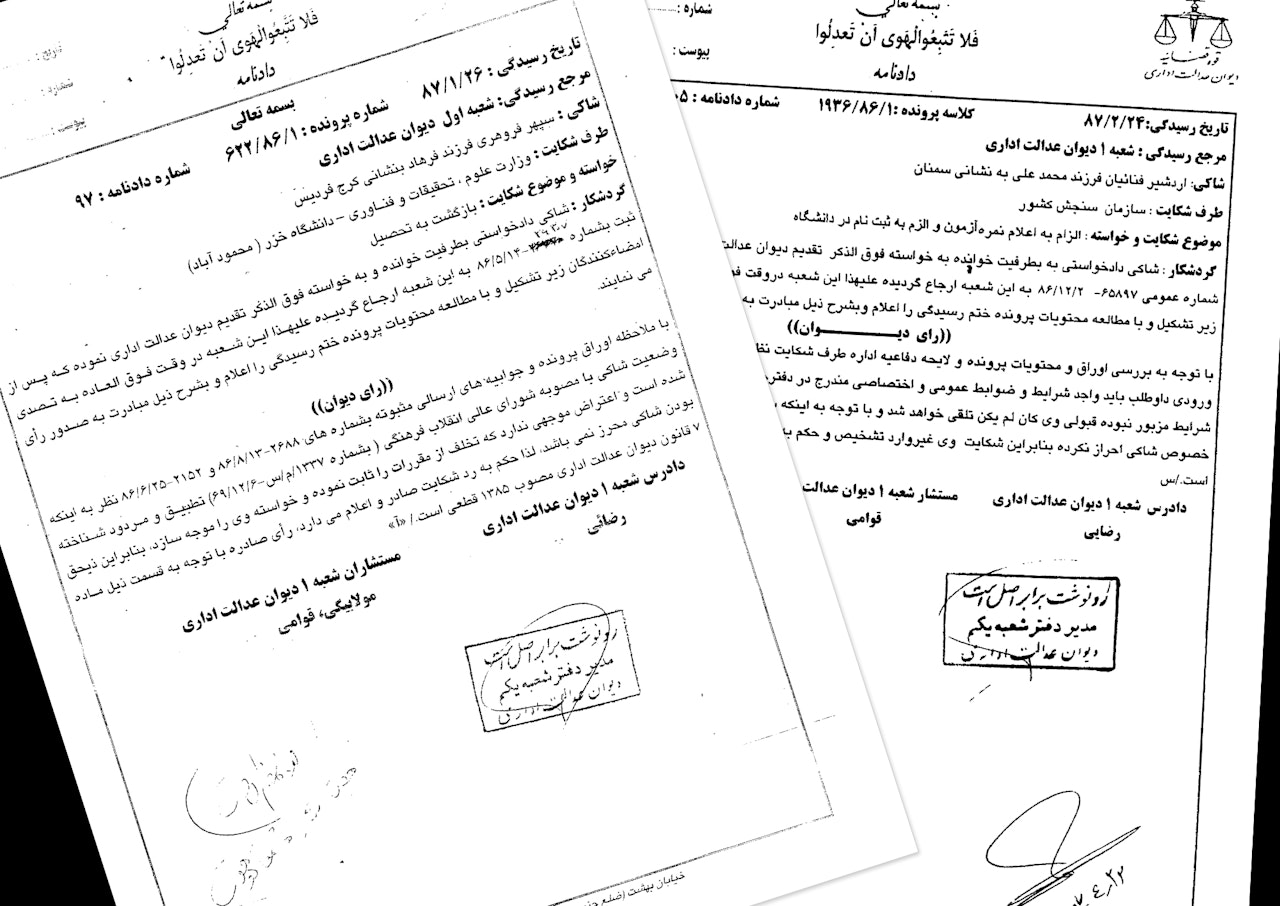 بسمه تعالی
فَلا تَتَّبِعُوالْهَوی اَنْ تَعدِلُوا
دادنامه
تاریخ :
شماره :
پیوست :
بسمه تعالی
تاریخ رسیدگی : ۸۷/۱/۲۶ شماره پرونده : ۶۲۲/۸۶/۱ شماره دادنامه : ۹۷
مرجع رسیدگی: شعبه اول دیوان عدالت اداری
شاکی : سپهر فروهری فرزند فرهاد بنشانی کرج فردیس
طرف شکایت : وزارت علوم ، تحقیقات و فناوری – دانشگاه خزر ( محمود آباد)
خواسته و موضوع شکایت : بازگشت به تحصیل
گردشکار : شاکی دادخواستی بطرفیت خوانده و به خواسته فوق الذکر تقدیم دیوان عدالت اداری نموده که پس از
ثبت بشماره ۸۶/۵/۱۴- به این شعبه ارجاع گردیده علیهذا این شعبه در وقت فوق العاده به تصدی
امضاءکنندگان زیر تشکیل و با مطالعه محتویات پرونده ختم رسیدگی را اعلام و بشرح ذیل مبادرت به صدور رأی
می نمایند.
((رای دیوان))
با ملاحظه اوراق پرونده و جوابیه های ارسالی مثبوته بشماره های ۲۶۸۸-۸۶/۸/۱۳ و ۲۱۵۲-۸۶/۶/۲۵ نظر به اینکه
وضعیت شاکی با مصوبه شورای عالی انقلاب فرهنگی ( بشماره ۱۳۳۷/م/س-۶۹/۱۲/۶) تطبیق و مردود شناخته
شده است و اعتراض موجهی ندارد که تخلف از مقررات را ثابت نموده و خواسته وی را موجه سازد، بنابراین ذیحق
بودن شاکی محرز نمی باشد، لذا حکم به رد شکایت صادر و اعلام می دارد، رأی صادره با توجه به قسمت ذیل ماده
۷ قانون دیوان عدالت اداری مصوب ۱۳۸۵ قطعی است./ «آ»
دادرس شعبه ۱ دیوان عدالت اداری
رضائی
مستشاران شعبه ۱ دیوان عدالت اداری
مولابیگی، قوامی
رونوشت برابر اصل است
مدیر دفتر شعبه یکم
دیوان عدالت اداری
خیابان بهشت (ضلع
قوه قضائیه
دیوان عدالت اداری
بسمه تعالی
فَلا تَتَّبِعُوالْهَوی اَنْ تَعدِلُوا
دادنامه
شماره :
پیوست :
تاریخ رسیدگی:۸۷/۲/۲۴ کلاسه پرونده :۱۹۳۶/۸۶/۱ شماره دادنامه :
مرجع رسیدگی : شعبه ۱ دیوان عدالت اداری
شاکی: اردشیر فنائیان فرزند محمد علی به نشانی سمنان
طرف شکایت : سازمان سنجش کشور
موضوع شکایت و خواسته : الزام به اعلام نمره آزمون و الزم به ثبت نام در دانشگاه
گردشکار : شاکی دادخواستی به بطرفیت خوانده به خواسته فوق الذکر تقدیم دیوان عدالت
شماره عمومی ۶۵۸۹۷- ۸۶/۱۲/۲ به این شعبه ارجاع گردیده علیهذا این شعبه دروقت
زیر تشکیل و با مطالعه محتویات پرونده ختم رسیدگی را اعلام وبشرح ذیل مبادرت به
((رای دیـــــوان))
با توجه به بررسی اوراق و محتویات پرونده و لایحه دفاعیه اداره طرف شکایت
ورودی داوطلب باید واجد شرایط و ضوابط عمومی و اختصاصی مندرج در
شرایط مزبور نبوده قبولی وی کان لم یکن تلقی خواهد شد و با توجه به اینکه
خصوص شاکی احراز نکرده بنابراین شکایت وی غیروارد تشخیص و حکم
است./س
دادرس شعبه ۱ دیوان عدالت اداری
رضایی
مستشار شعبه ۱ دیوان عدالت
قوامی
رونوشت برابر اصل است
مدیر دفتر شعبه یکم
دیوان عدالت اداری